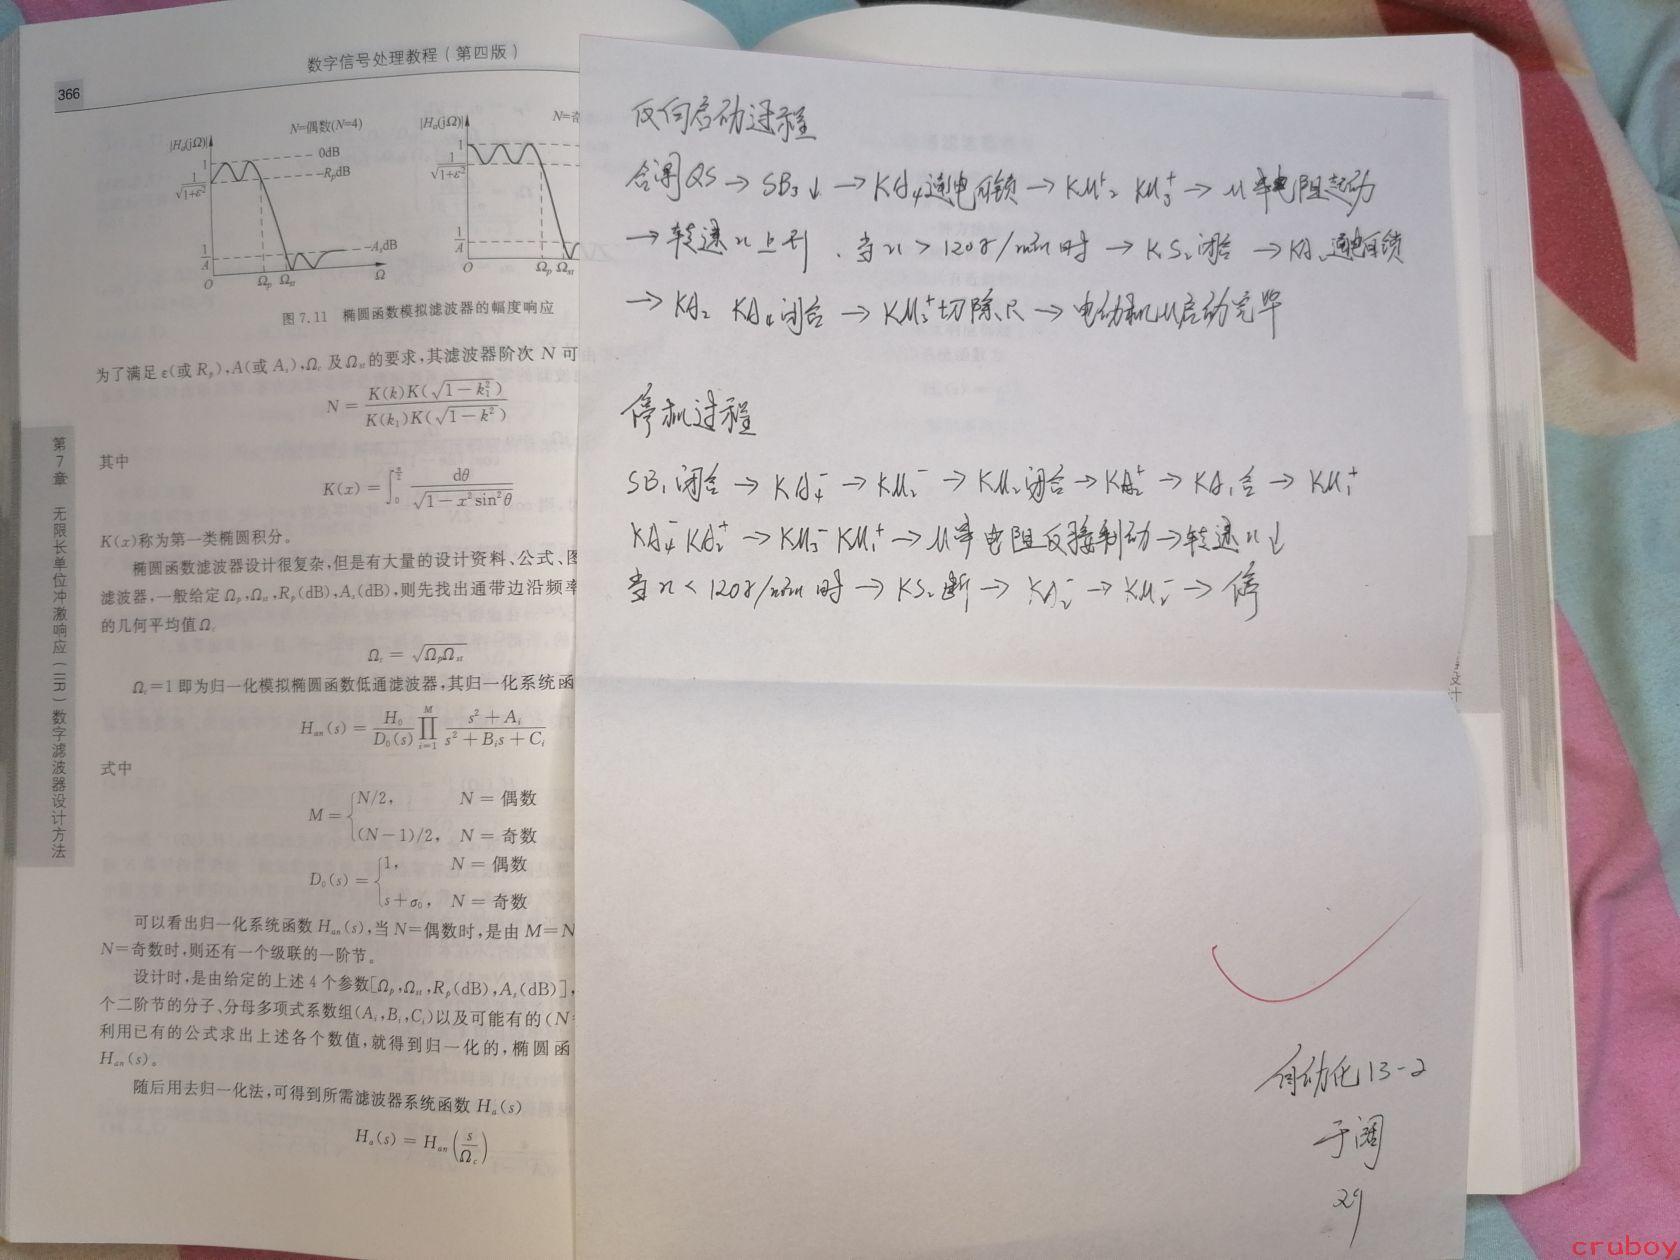 数字信号处理教程(第四版)
366
|Ha(jΩ)|
N=偶数(N=4)
1
0dB
1/√(1+ε²)
-RpdB
1/A
-AsdB
O Ωp Ωst Ω
|Ha(jΩ)|
N=奇
1
1/√(1+ε²)
1/A
O Ωp Ωst
图 7.11 椭圆函数模拟滤波器的幅度响应
为了满足 ε(或 Rp),A(或 As),Ωc 及 Ωst 的要求,其滤波器阶次 N 可
N = K(k)K(√(1-k₁²)) / K(k₁)K(√(1-k²))
其中
K(x) = ∫₀^(π/2) dθ / √(1-x² sin²θ)
K(x)称为第一类椭圆积分。
椭圆函数滤波器设计很复杂,但是有大量的设计资料、公式、图
滤波器,一般给定 Ωp,Ωst,Rp(dB),As(dB),则先找出通带边沿频率
的几何平均值 Ωc
Ωc = √(ΩpΩst)
Ωc=1 即为归一化模拟椭圆函数低通滤波器,其归一化系统函
Han(s) = H₀/D₀(s) ∏(i=1, M) (s² + Ai)/(s² + Bis + Ci)
式中
M = { N/2, N = 偶数
(N-1)/2, N = 奇数
D₀(s) = { 1, N = 偶数
s+σ₀, N = 奇数
可以看出归一化系统函数 Han(s),当 N=偶数时,是由 M=N
N=奇数时,则还有一个级联的一阶节。
设计时,是由给定的上述 4 个参数[Ωp,Ωst,Rp(dB),As(dB)],
个二阶节的分子、分母多项式系数组(Ai,Bi,Ci)以及可能有的(N
利用已有的公式求出上述各个数值,就得到归一化的,椭圆函
Han(s)。
随后用去归一化法,可得到所需滤波器系统函数 Ha(s)
Ha(s) = Han(s/Ωc)
第7章 无限长单位冲激响应(IIR)数字滤波器设计方法
反向启动过程
合闸QS → SB₃↓ → KA₄通电自锁 → KM₂⁺ KM₃⁺ → M串电阻起动
→ 转速n上升、当n > 120r/min时 → KS₂闭合 → KA₂通电自锁
→ KA₂ KA₄闭合 → KM₃⁺切除R → 电动机M启动完毕
停机过程
SB₁闭合 → KA₄⁻ → KM₂⁻ → KM₂闭合 → KA₂⁺ → KA₁合 → KM₁⁺
KA₄⁻ KA₂⁺ → KM₃⁻ KM₁⁺ → M串电阻反接制动 → 转速n↓
当n < 120r/min时 → KS₂断 → KA₂⁻ → KM₂⁻ → 停
自动化13-2
于阔
29
cruboy